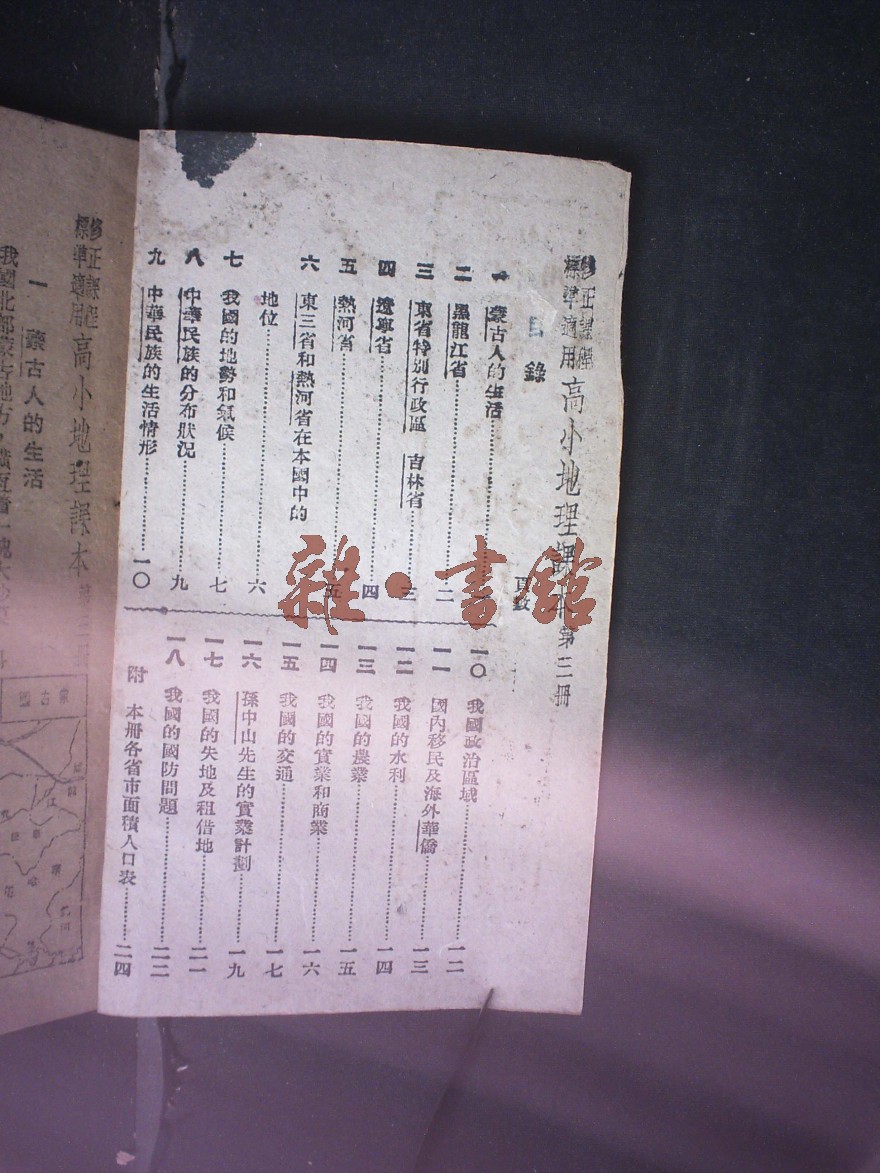 修正課程標準適用 高小地理課本 第三冊
目錄
頁數
一 蒙古人的生活
二 黑龍江省 二
三 東省特別行政區 吉林省 三
四 遼寧省 四
五 熱河省 五
六 東三省和熱河省在本國中的
地位 六
七 我國的地勢和氣候 七
八 中華民族的分布狀況 九
九 中華民族的生活情形 一〇
一〇 我國政治區域 一二
一一 國內移民及海外華僑 一三
一二 我國的水利 一四
一三 我國的農業 一五
一四 我國的實業和商業 一六
一五 我國的交通 一七
一六 孫中山先生的實業計劃 一九
一七 我國的失地及租借地 二一
一八 我國的國防問題 二二
附 本冊各省市面積人口表 二四
雜·書館
修正課程標準適用 高小地理課本
一 蒙古人的生活
我國北部蒙古地方